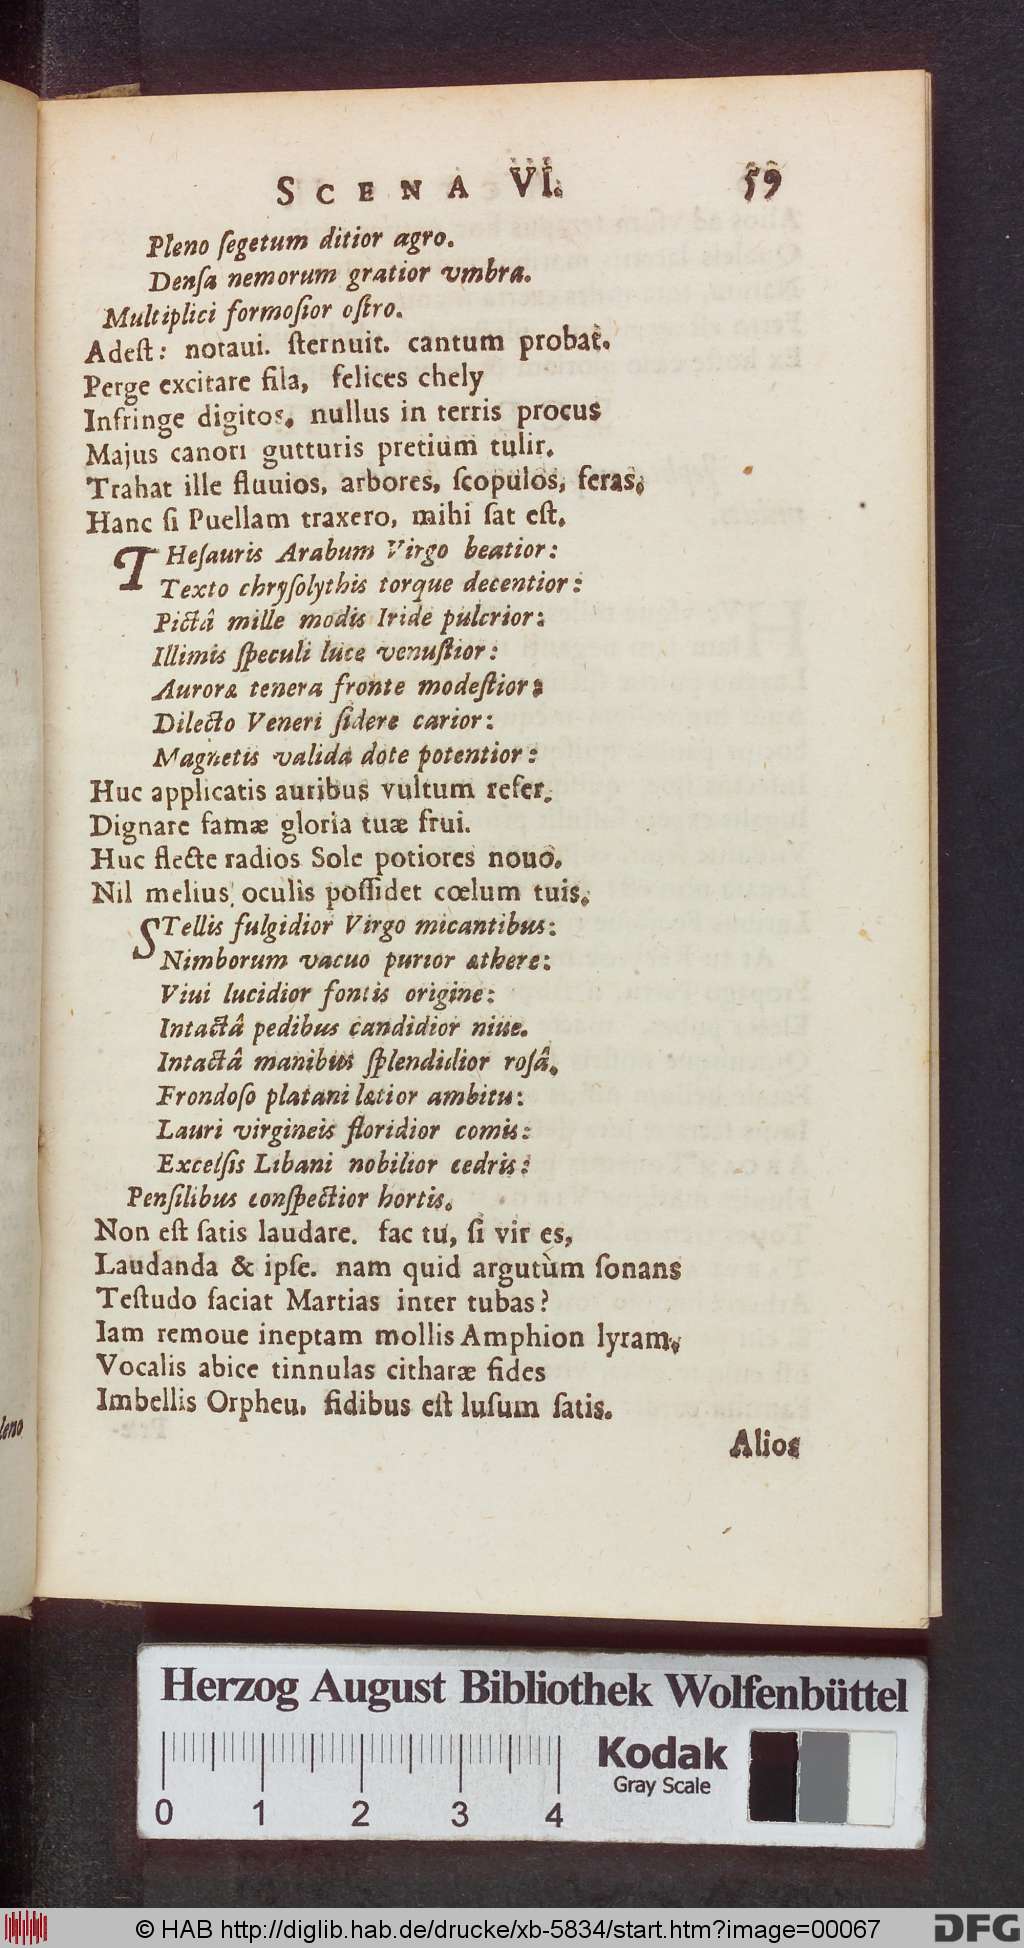 SCENA VI. 59
Pleno ſegetum ditior agro.
Denſa nemorum gratior vmbra.
Multiplici formoſior oſtro.
Adeſt: notaui. ſternuit. cantum probat.
Perge excitare fila, felices chely
Infringe digitos, nullus in terris procus
Majus canori gutturis pretium tulit.
Trahat ille fluuios, arbores, ſcopulos, feras,
Hanc ſi Puellam traxero, mihi ſat eſt.
THeſauris Arabum Virgo beatior:
Texto chryſolythis torque decentior:
Pictâ mille modis Iride pulcrior:
Illimis ſpeculi luce venuſtior:
Auroræ tenera fronte modeſtior:
Dilecto Veneri ſidere carior:
Magnetis valida dote potentior:
Huc applicatis auribus vultum refer.
Dignare famæ gloria tuæ frui.
Huc flecte radios Sole potiores nouo.
Nil melius oculis poſſidet cœlum tuis.
STellis fulgidior Virgo micantibus:
Nimborum vacuo purior æthere:
Viui lucidior fontis origine:
Intactâ pedibus candidior niue.
Intactâ manibus ſplendidior roſâ.
Frondoſo platani lætior ambitu:
Lauri virgineis floridior comis:
Excelſis Libani nobilior cedris:
Penſilibus conſpectior hortis.
Non eſt ſatis laudare. fac tu, ſi vir es,
Laudanda & ipſe. nam quid argutùm ſonans
Teſtudo faciat Martias inter tubas?
Iam remoue ineptam mollis Amphion lyram,
Vocalis abice tinnulas citharæ fides
Imbellis Orpheu. fidibus eſt luſum ſatis.
Alios
leno
Herzog August Bibliothek Wolfenbüttel
Kodak
Gray Scale
0 1 2 3 4
© HAB http://diglib.hab.de/drucke/xb-5834/start.htm?image=00067
DFG